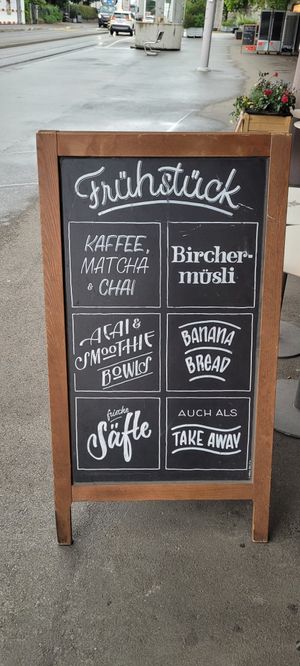 Frühstück
KAFFEE,
MATCHA
& CHAI
Bircher-
müsli
AÇAI &
SMOOTHIE
BOWLS
BANANA
BREAD
frische
Säfte
AUCH ALS
TAKE AWAY